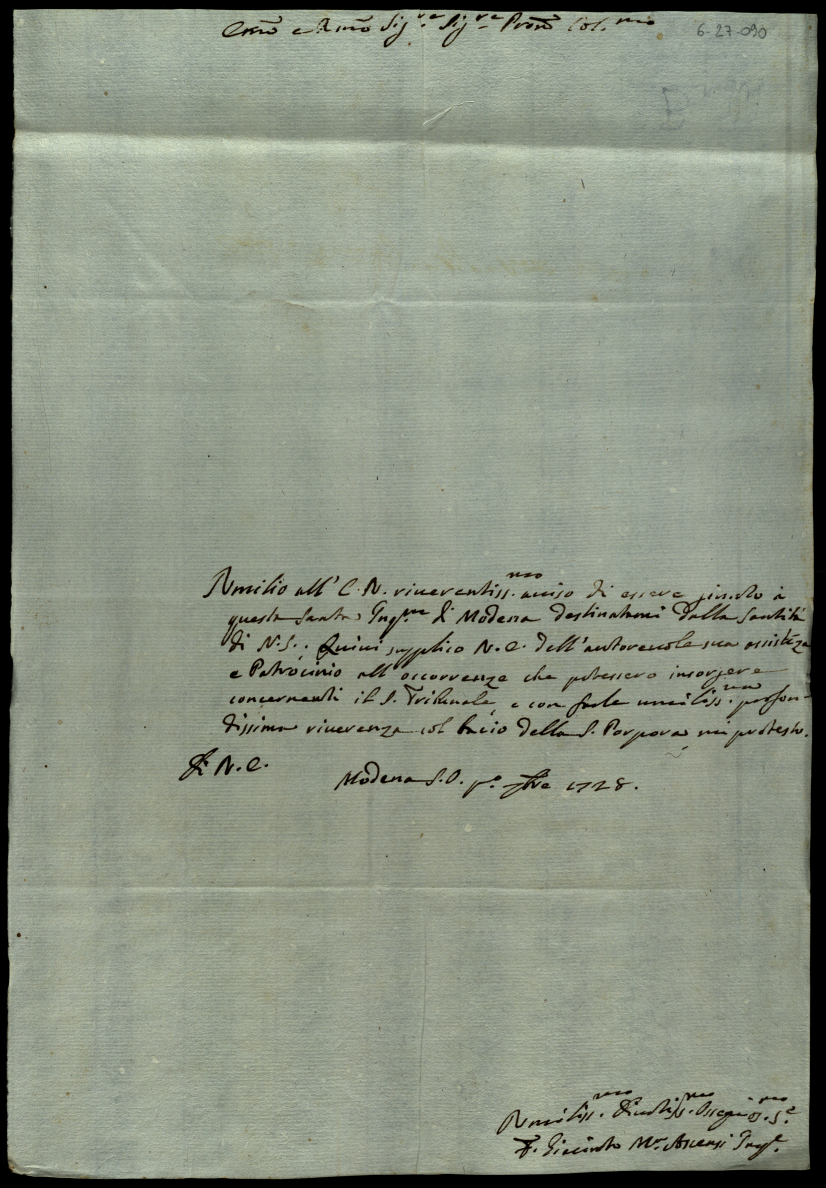 Emo e Rmo Sig.re Sig.re Pron Col.mo
6-27-090
Umilio all' E. V. riverentiss.mo auiso di essere giunto à
questa Santa Inq.ne di Modena destinatami dalla Santità
di N. S.; Quiui supplico V. E. dell' autoreuole sua assistēza
e Patrocinio all' occorrenze che potessero insorgere
concernenti il S. Tribunale, e con farle umiliss.ma profon-
dissima riuerenza col bacio della S. Porpora mi protesto.
Di V. E.
Modena S. O. p.o 1728.
Umiliss.mo Diuotiss.mo Osseq.mo S.e
F. Giacinto M.a Ascensi Inq.e